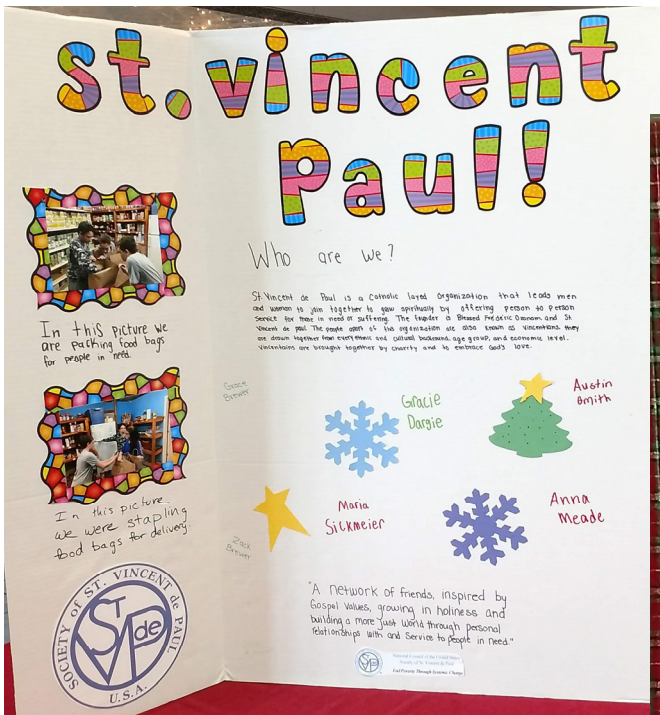 st. vincent
Paul!
In this picture we
are packing food bags
for people in need.
In this picture
we were stapling
food bags for delivery
SOCIETY OF ST. VINCENT de PAUL
U.S.A.
ST
VP
de
Who are we?
St. Vincent de Paul is a Catholic layed organization that leads men
and woman to join together to grow spiritually by offering person to person
service for those in need or suffering. The founder is Blessed Frédéric Ozanam and St.
Vincent de paul The people apart of this organization are also known as vincentians they
are drawn together from every ethnic and cultural background, age group, and economic level.
Vincentains are brought together by charity and to embrace God's love.
Grace
Brewer
Gracie
Dargie
Austin
Smith
Maria
Sickmeier
Anna
Meade
Zack
Brewer
"A network of friends, inspired by
Gospel values, growing in holiness and
building a more just world through personal
relationships with and service to people in need."
National Council of the United States
Society of St. Vincent de Paul
End Poverty Through Systemic Change